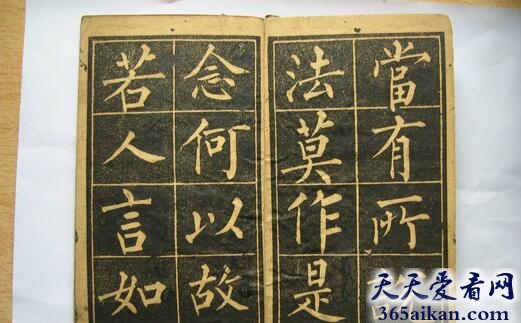 當有所
法莫作是
念何以故
若人言如
天天爱看网
365aikan.com